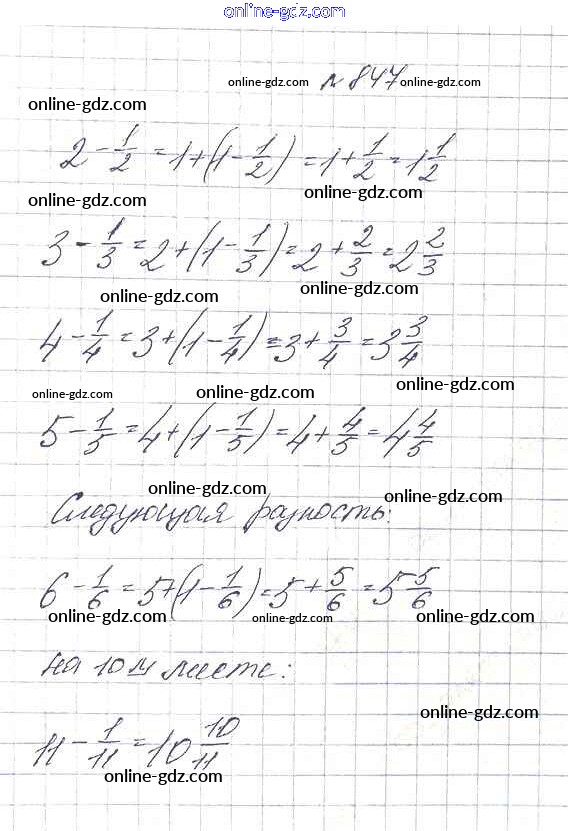 online-gdz.com
online-gdz.com № 847 online-gdz.com
online-gdz.com
2 - 1/2 = 1 + (1 - 1/2) = 1 + 1/2 = 1 1/2
online-gdz.com online-gdz.com
3 - 1/3 = 2 + (1 - 1/3) = 2 + 2/3 = 2 2/3
online-gdz.com online-gdz.com
4 - 1/4 = 3 + (1 - 1/4) = 3 + 3/4 = 3 3/4
online-gdz.com online-gdz.com online-gdz.com
5 - 1/5 = 4 + (1 - 1/5) = 4 + 4/5 = 4 4/5
online-gdz.com online-gdz.com
Следующая разность:
6 - 1/6 = 5 + (1 - 1/6) = 5 + 5/6 = 5 5/6
online-gdz.com online-gdz.com online-gdz.com
на 10м месте:
online-gdz.com
11 - 1/11 = 10 10/11
online-gdz.com